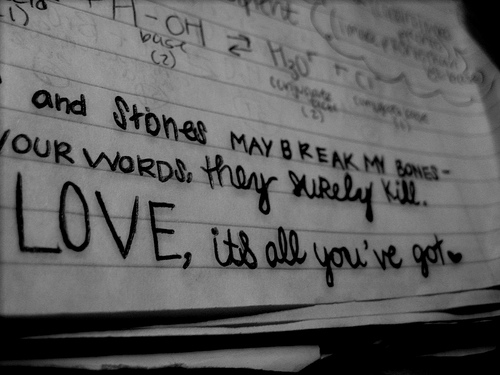 1) H-OH ⇌ H₃O⁺ + Cl
base
(2) conjugate
(2)
and Stones MAY BREAK MY BONES-
YOUR WORDS, they surely kill.
LOVE, its all you've got♥